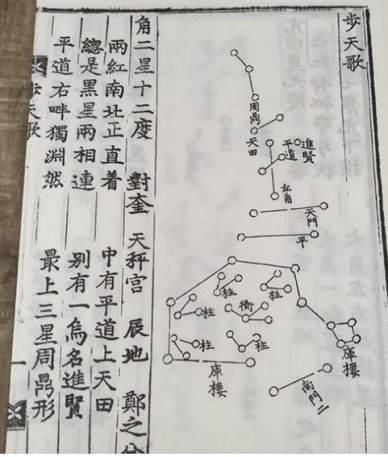 步天歌
周鼎
天田
平道
進賢
角
天門
平
柱
衡
柱
柱
柱
庫樓
庫樓
南門二
角二星十二度 對奎 天秤宮 辰地 鄭之分
兩紅南北正直着 中有平道上天田
總是黑星兩相連 別有一烏名進賢
平道右畔獨淵然 最上三星周鼎形
步天歌 一